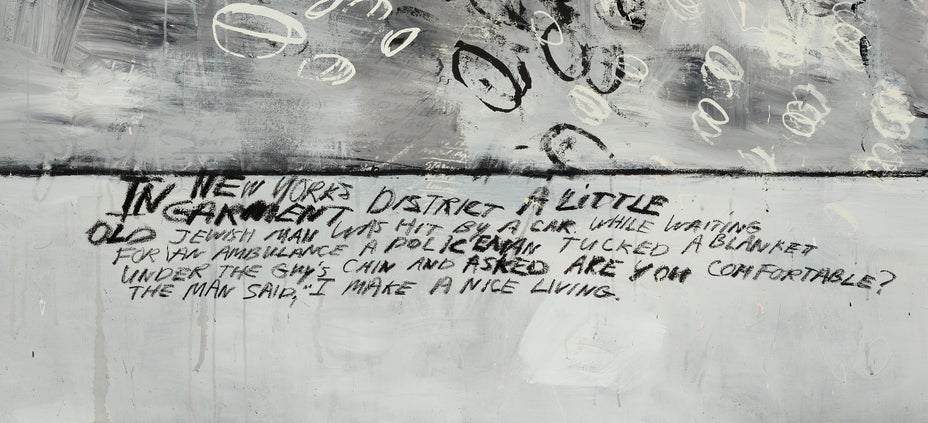 IN NEW YORKS
GARMENT DISTRICT A LITTLE
OLD JEWISH MAN WAS HIT BY A CAR. WHILE WAITING
FOR AN AMBULANCE A POLICEMAN TUCKED A BLANKET
UNDER THE GUY'S CHIN AND ASKED ARE YOU COMFORTABLE?
THE MAN SAID, "I MAKE A NICE LIVING.